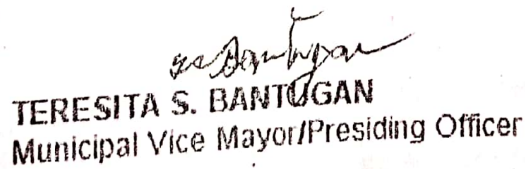 TERESITA S. BANTUGAN
Municipal Vice Mayor/Presiding Officer